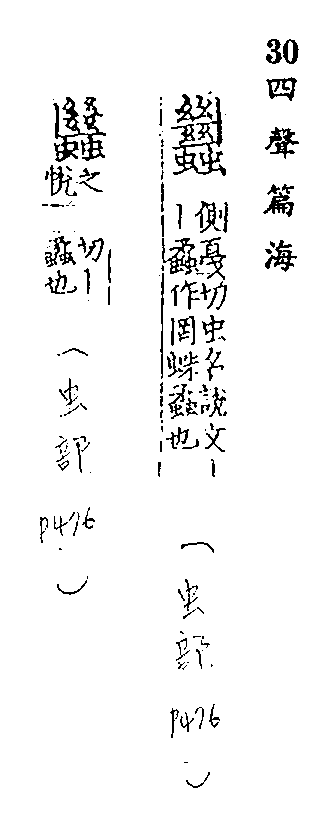 30 四聲篇海
蠿 側憂切虫名說文丨
丨蟊作罔蛛蟊也
(虫部 P476)
蠿 之悅切丨
蟊也
(虫部 P476)